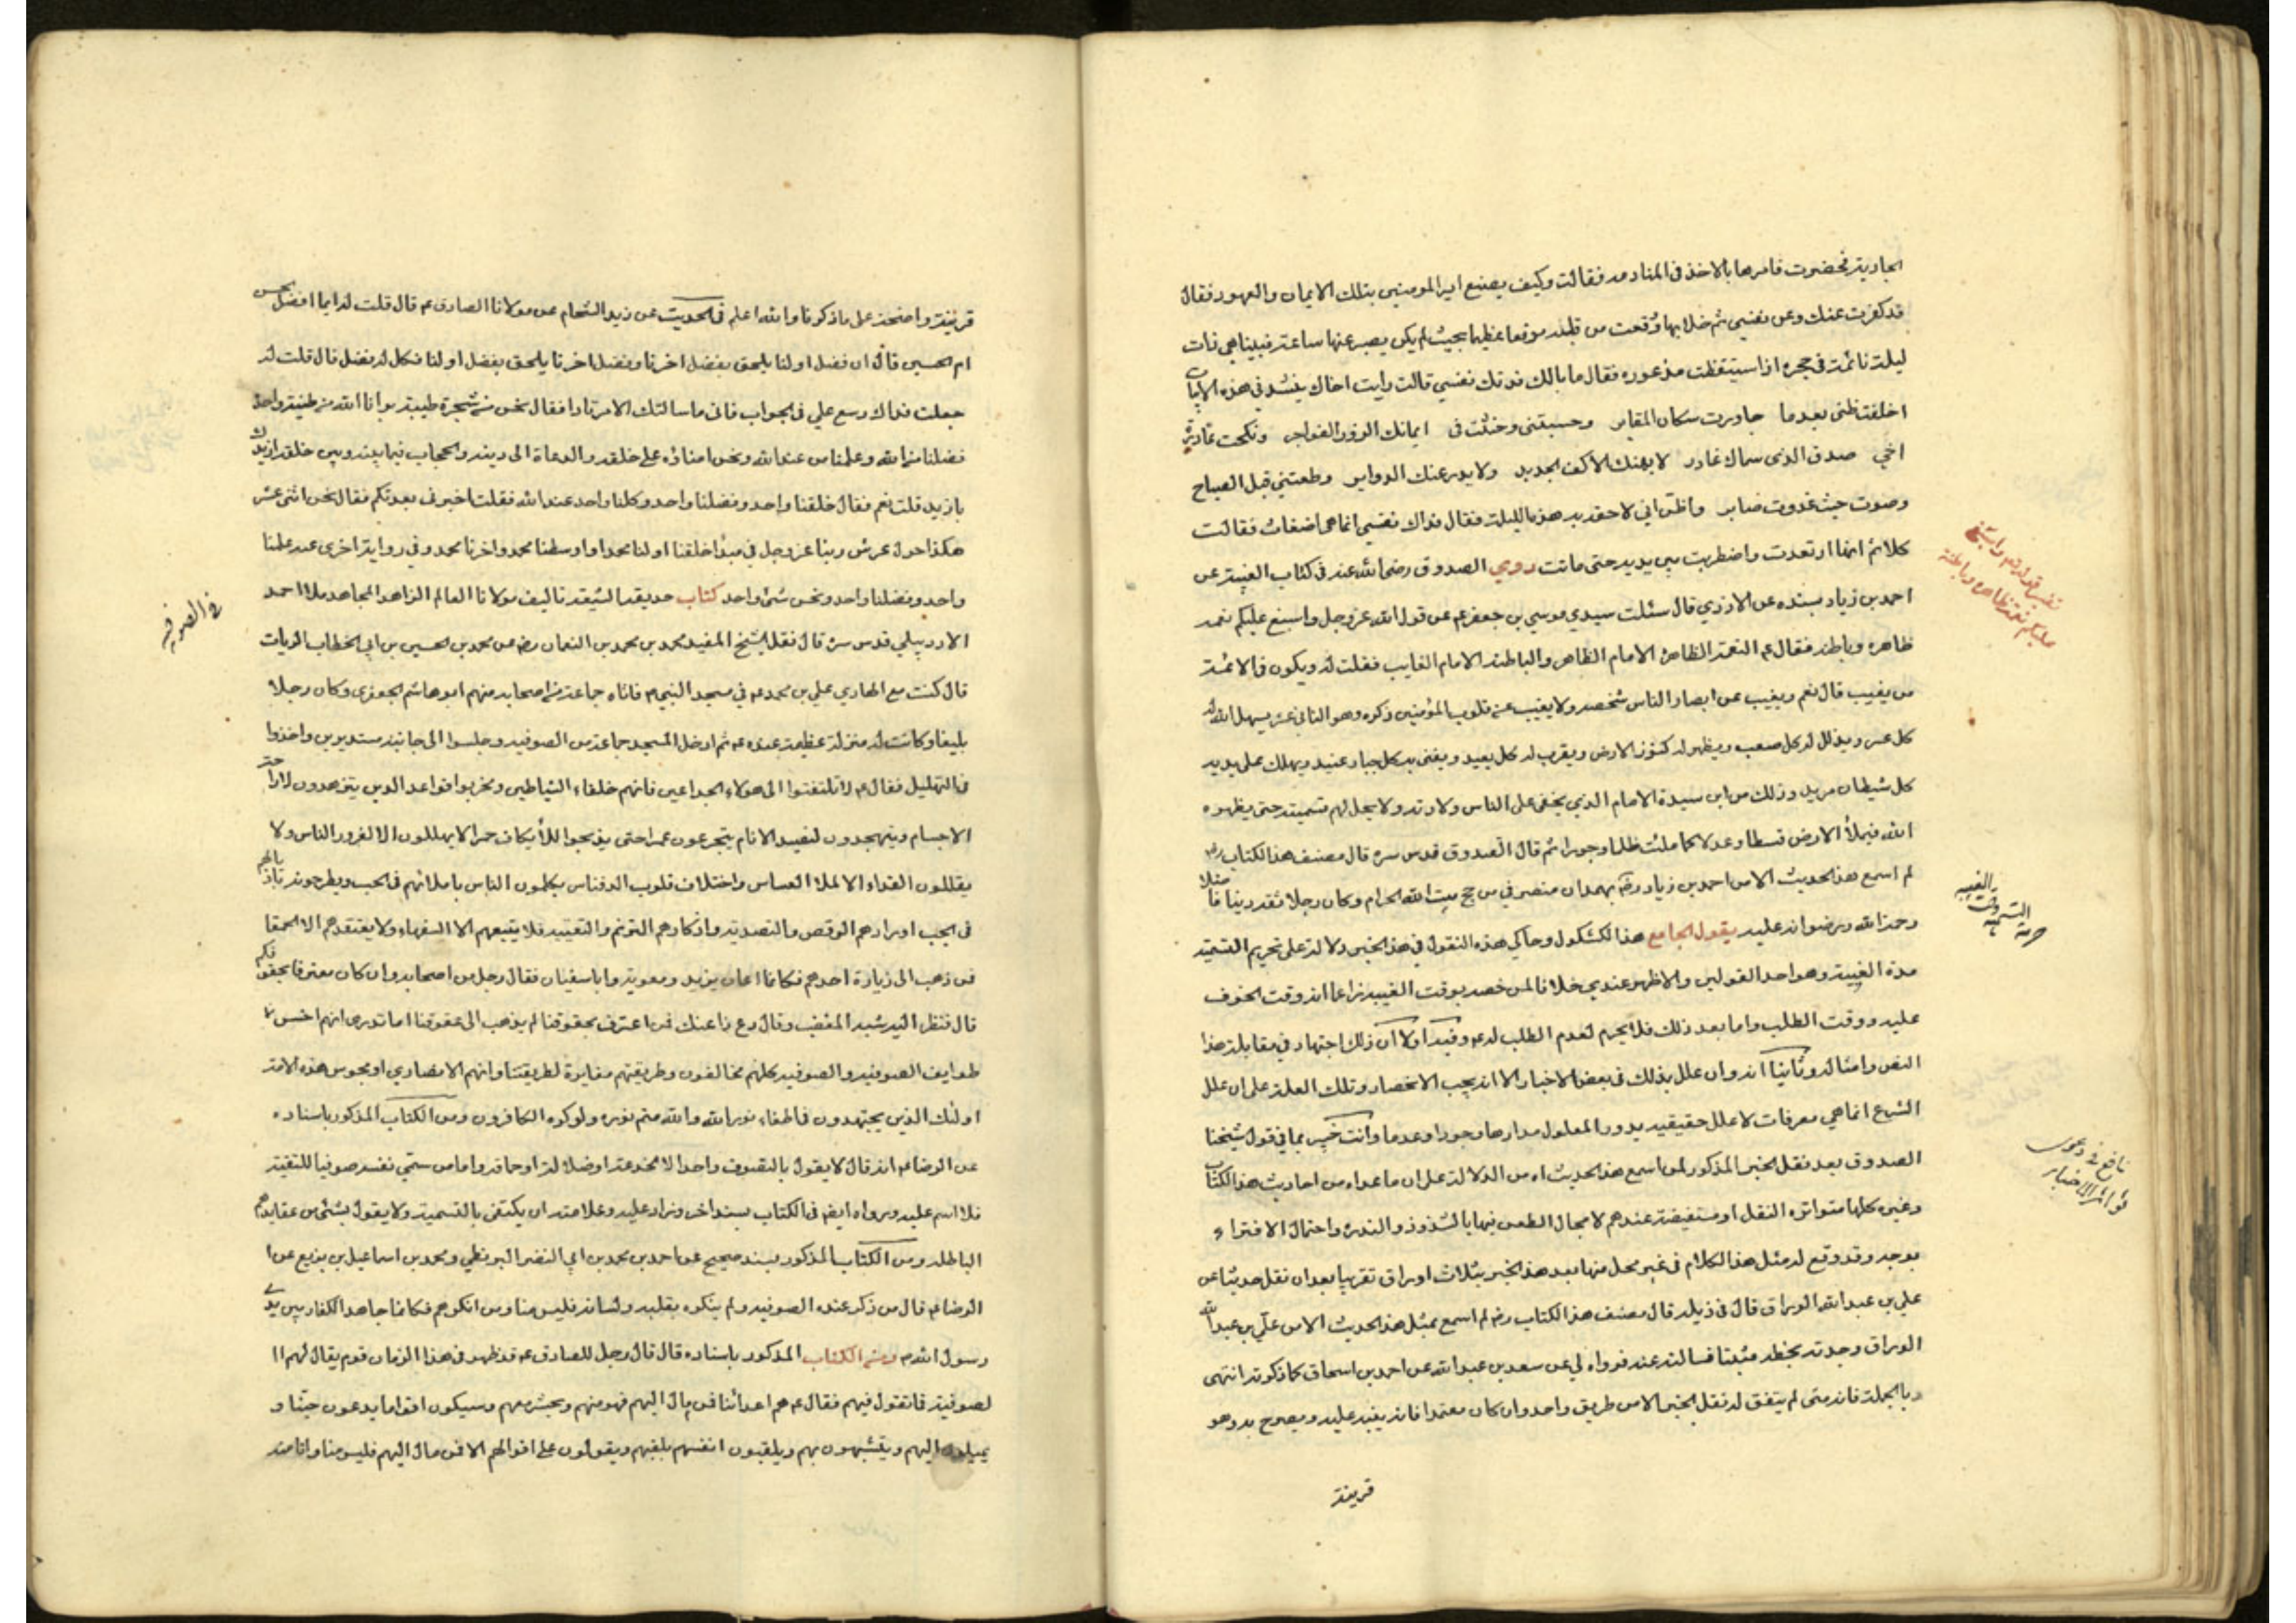 الجارية فحضرت فامرها بالاخذ في المنادمه فقالت وكيف يصنع امير المومنين بتلك الايمان والعهود فقال
قد كفرت عنك وعن نفسي ثم خلا بها وقعت من قلبه موقعا عظيما بحيث لم يكن يصبر عنها ساعة فبيناهي ذات
ليلة نائمة في حجره اذا ستيقظت مذعوره فقال ما بالك فدتك نفسي قالت رايت اخاك ينشد في هذه الابيات
اخلفت ظني بعدما جاورت سكان المقابر وحسبتني وحنثت في ايمانك الزور الفواجر ونكحت غادرة
اخي صدق الذي سماك غادر لا يهنك الالف الجديد ولا يدر عنك الدواير وطعتني قبل الصباح
وصرت حيث غدوت صابر واظن اني لاحقة به هذه الليلة فقال فداك نفسي انما هي اضغاث فقالت
كلا ثم انها ارتعدت واضطربت بين يديه حتى ماتت روي الصدوق رضي الله عنه في كتاب الغيبة عن
احمد بن زياد بسنده عن الازدي قال سئلت سيدي موسى بن جعفر ع عن قول الله عز وجل واسبغ عليكم نعمه
ظاهره وباطنه فقال ع النعمة الظاهرة الامام الظاهر والباطنة الامام الغايب فقلت له ويكون في الائمة
من يغيب قال نعم ويغيب عن ابصار الناس شخصه ولا يغيب عن قلوب المؤمنين ذكره وهو الثاني عشر يسهل الله له
كل عسر ويذلل له كل صعب ويظهر له كنوز الارض ويقرب له كل بعيد ويفني به كل جبار عنيد ويهلك على يديه
كل شيطان مريد وذلك من ابن سيدة الامام الذي يخفى على الناس ولادته ولا يحل لهم تسميته حتى يظهره
الله فيملأ الارض قسطا وعدلا كما ملئت ظلما وجورا ثم قال الصدوق قدس سره قال مصنف هذا الكتاب ره
لم اسمع هذا الحديث الا من احمد بن زياد رضه بهمدان منصرفي من حج بيت الله الحرام وكان رجلا ثقة دينا فاضلا
رحمة الله ورضوانه عليه يقول الجامع هذا الكشكول وحاكي هذه النقول في هذا الخبر دلالة على تحريم التسمية
مدة الغيبة وهو احد القولين والاظهر عندي خلافا لمن خصه بوقت الغيبة زاعما انه وقت الخوف
عليه ووقت الطلب واما بعد ذلك فلا يحرم لعدم الطلب له ع وفيه اولا ان ذلك اجتهاد في مقابلة هذا
النص وامثاله وثانيا انه وان علل بذلك في بعض الاخبار الا انه يجب الانحصار وتلك العلة على ان علل
الشرع انما هي معرفات لا علل حقيقيه يدور المعلول مدارها وجودا وعدما وانت خبير بما في قول شيخنا
الصدوق بعد نقل الخبر المذكور لم اسمع هذا الحديث اه من الدلالة على ان ما عداه من احاديث هذا الكتاب
وغيره كلها متواتره النقل او مستفيضة عندهم لا مجال الطعن فيها بالشذوذ والندره واحتمال الافتراء
بوجه وقد وقع له مثل هذا الكلام في غير محل منها بعد هذا الخبر بثلاث اوراق تقريبا بعد ان نقل حديثا عن
علي بن عبد الله الوراق قال في ذيله قال مصنف هذا الكتاب ره لم اسمع بمثل هذا الحديث الا من علي بن عبد الله
الوراق وجدته بخطه مثبتا فسالته عنه فرواه لي عن سعد بن عبد الله عن احمد بن اسحاق كما ذكرته انتهى
وبالجملة فانه متى لم يتفق له نقل الخبر الا من طريق واحد وان كان معتمدا فانه ينبه عليه ويصرح به وهو
قرينة
تفسير قوله تعالى واسبغ
عليكم نعمه ظاهره وباطنة
حرمة التسمية وقت الغيبه
نافع في دعوى
تواتر الاخبار
قرينة واضحة على ما ذكرنا والله اعلم في الحديث عن زيد الشحام عن مولانا الصادق ع قال قلت له ايما افضل الحسن
ام الحسين قال ان فضل اولنا يلحق بفضل اخرنا وفضل اخرنا يلحق بفضل اولنا فكل له فضل قال قلت له
جعلت فداك وسع علي في الجواب فاني ما سالتك الا مرتادا فقال نحن من شجرة طيبة برانا الله من طينة واحدة
فضلنا من الله وعلمنا من عند الله ونحن امناؤه على خلقه والدعاة الى دينه والحجاب فيما بينه وبين خلقه ازيدك
يا زيد قلت نعم فقال خلقنا واحد وفضلنا واحد وكلنا واحد عند الله فقلت اخبرني بعدتكم فقال نحن اثنى عشر
هكذا حول عرش ربنا عز وجل في مبدأ خلقنا اولنا محمد واوسطنا محمد واخرنا محمد وفي رواية اخرى عنه علمنا
واحد وفضلنا واحد ونحن شئ واحد كتاب حديقة الشيعة تاليف مولانا العالم الزاهد المجاهد ملا احمد
الاردبيلي قدس سره قال نقل الشيخ المفيد محمد بن محمد بن النعمان رضه عن محمد بن الحسين بن ابي الخطاب الزيات
قال كنت مع الهادي علي بن محمد ع في مسجد النبي ص فاتاه جماعة من اصحابه منهم ابو هاشم الجعفري وكان رجلا
بليغا وكانت له منزلة عظيمة عنده ع ثم ادخل المسجد جماعة من الصوفيه وجلسوا الى جانبه مستديرين واخذوا
في التهليل فقال ع لا تلتفتوا الى هولاء الخداعين فانهم خلفاء الشياطين ومخربوا قواعد الدين يتزهدون لاراحة
الاجسام ويتهجدون لتقييد الانام يتجرعون عمرا حتى يذبحوا للأيكاف حمرا لا يهللون الا لغرور الناس ولا
يقللون الغذاء الا لملأ العساس واختلاف قلوب الدفناس يكلمون الناس باملائهم في الحب ويطرحونه باذلالهم
في الجب اورادهم الرقص والتصدية واذكارهم الترنم والتغنية فلا يتبعهم الا السفهاء ولا يعتقدهم الا الحمقا
فمن ذهب الى زيارة احدهم فكانما اعان يزيد ومعوية وابا سفيان فقال رجل من اصحابه وان كان معترفا بحقوقكم
قال فنظر اليه شبه المغضب وقال دع ذا عنك فمن اعترف بحقوقنا لم يذهب الى عقوقنا اما تدرى انهم اخس
طوايف الصوفيه والصوفيه كلهم مخالفون وطريقتهم مغايرة لطريقتنا وانهم الا نصارى او مجوس هذه الامة
اولئك الذين يجتهدون في اطفاء نور الله والله متم نوره ولو كره الكافرون ومن الكتاب المذكور باسناده
عن الرضا ع انه قال لا يقول بالتصوف واحد الا لخدعة او ضلالة او حماقه واما من سمى نفسه صوفيا للتقية
فلا اسم عليه ورواه ايضا في الكتاب بسند اخر وزاد عليه وعلامته ان يكتفي بالتسمية ولا يقول بشئ من عقايدهم
الباطله ومن الكتاب المذكور بسند صحيح عن احمد بن محمد بن ابي النصر البزنطي ومحمد بن اسماعيل بن بزيع عن ا
الرضا ع قال من ذكر عنده الصوفيه ولم ينكره بقلبه ولسانه فليس منا ومن انكرهم فكانما جاهد الكفار بين يدي
رسول الله ص ومن الكتاب المذكور باسناده قال قال رجل للصادق ع قد ظهر في هذا الزمان قوم يقال لهم ا
لصوفية فما تقول فيهم فقال ع هم اعدائنا فمن مال اليهم فهو منهم ويحشر معهم وسيكون اقواما يدعون حبنا و
يميلون اليهم ويتشبهون بهم ويلقبون انفسهم بلقبهم ويقولون على اقوالهم الا فمن مال اليهم فليس منا وانا منه
في الصوفيه